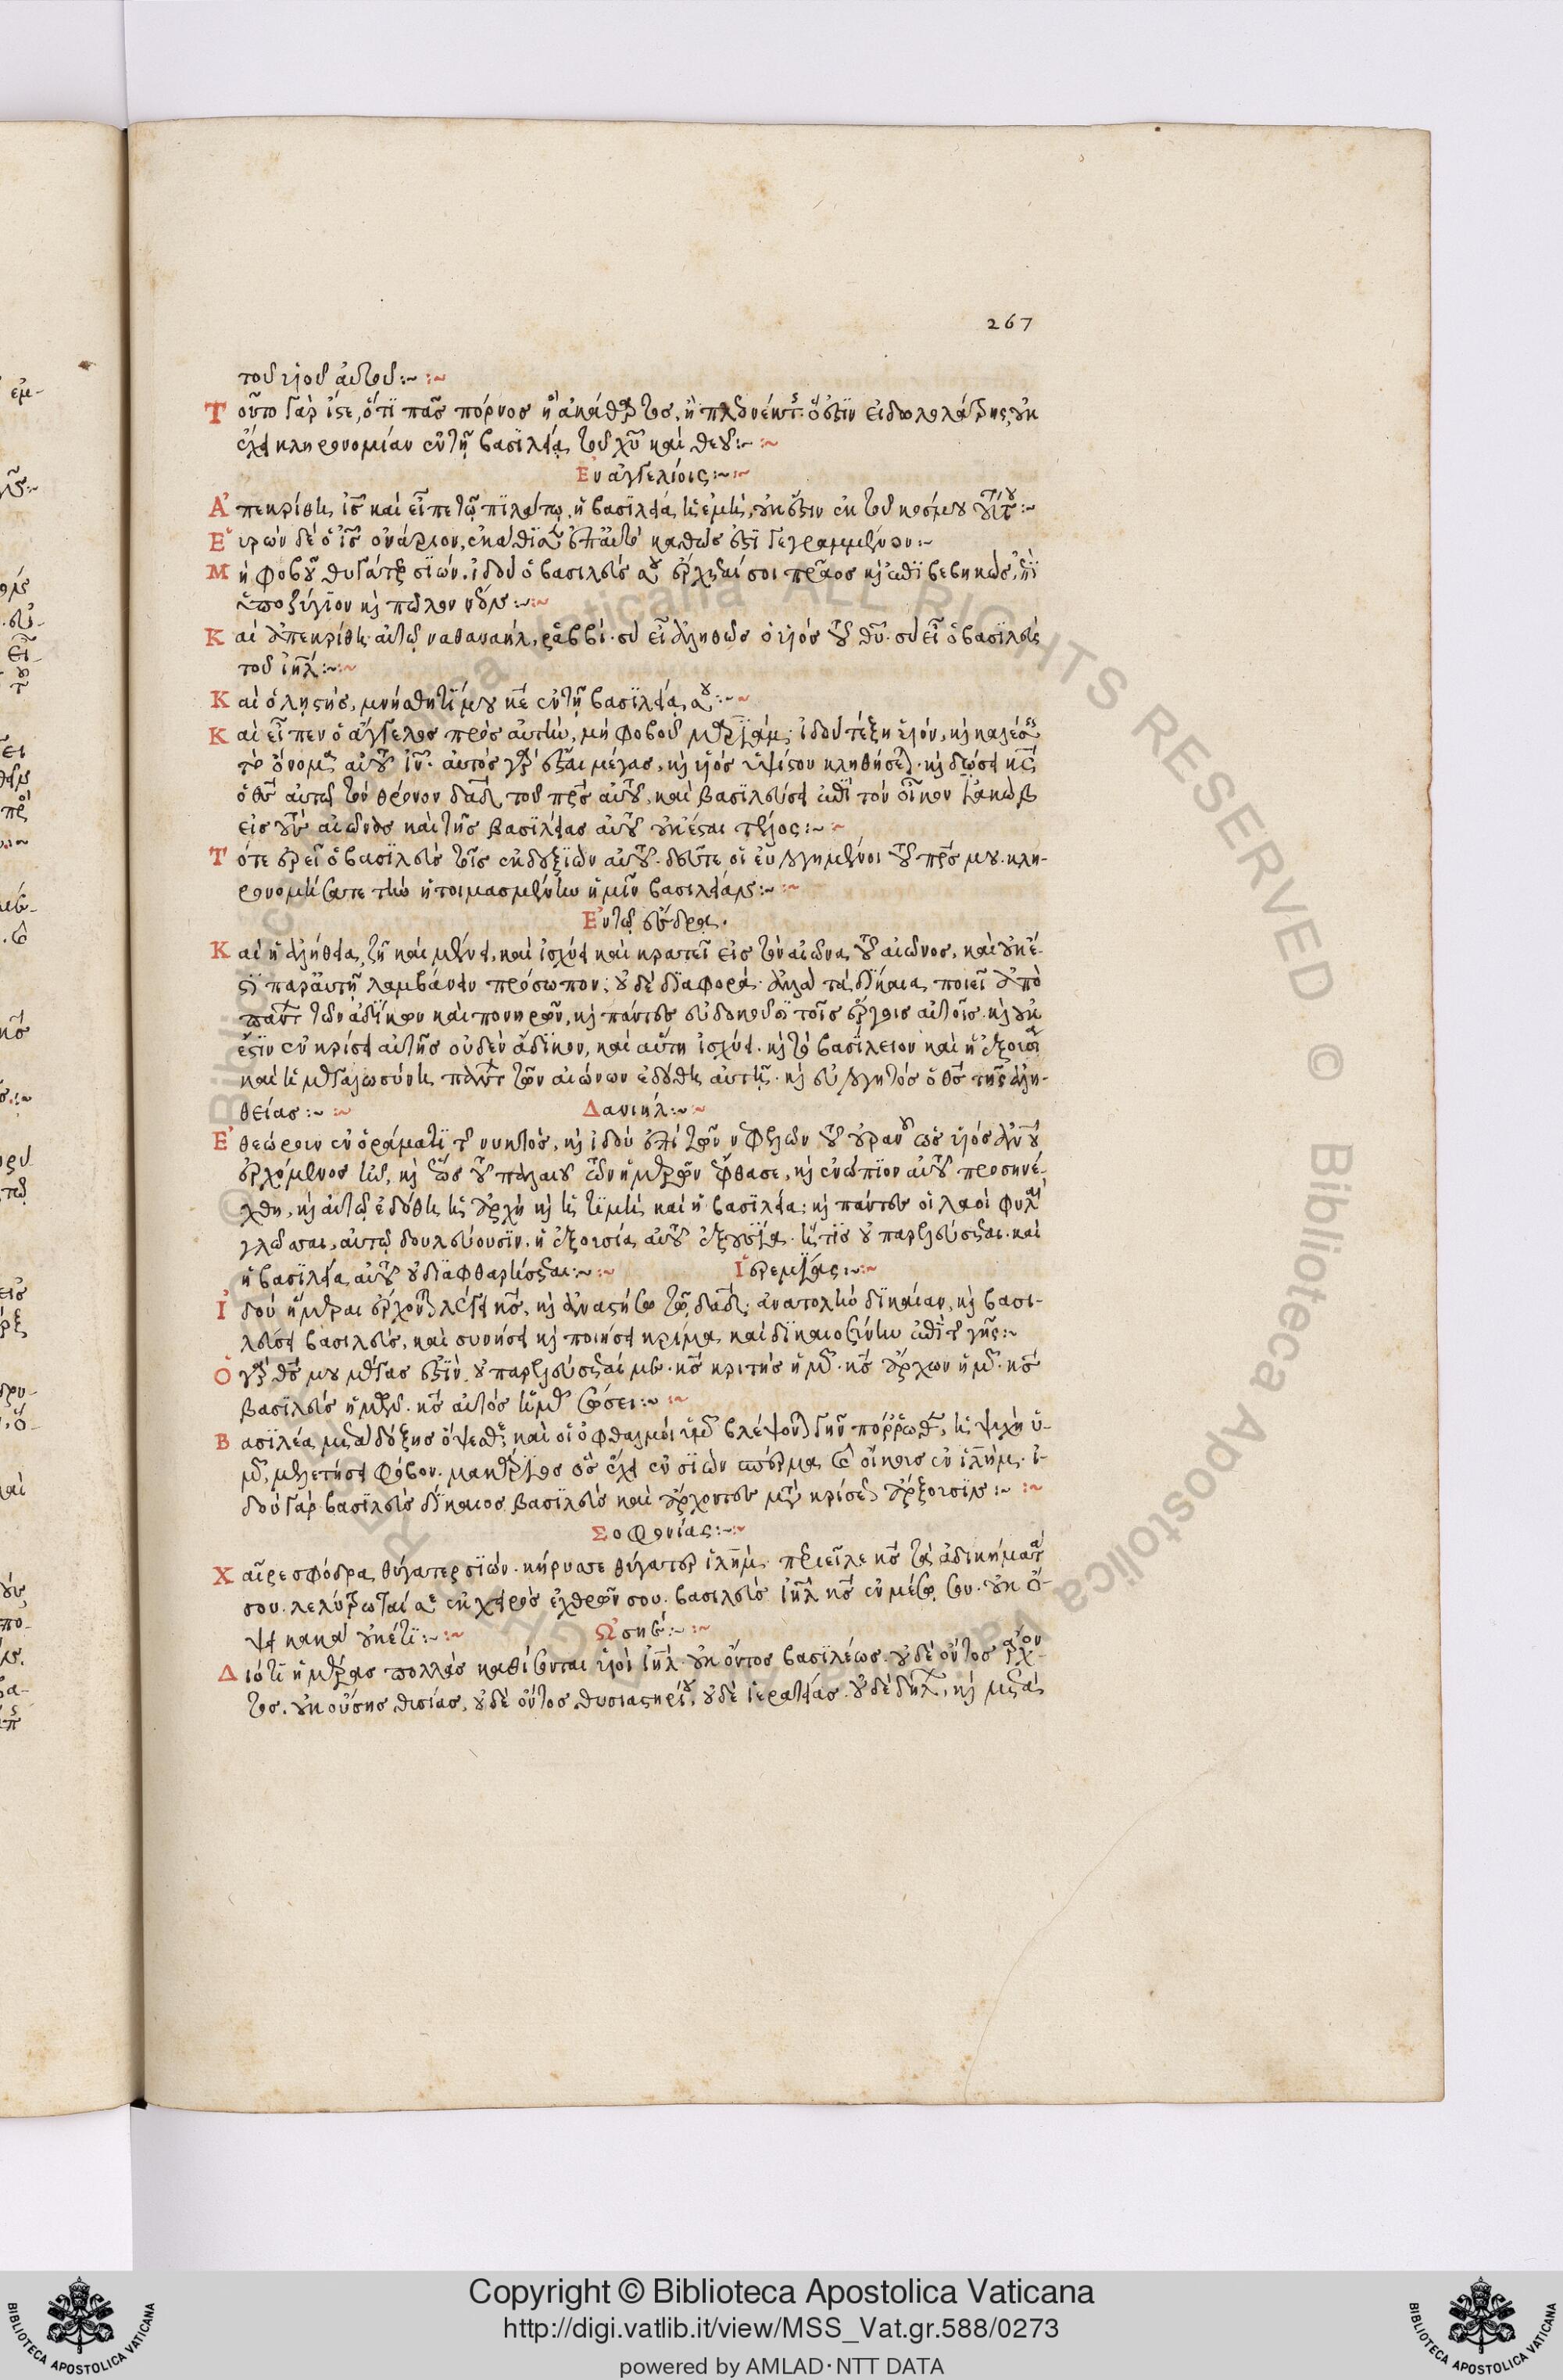 267
τοῦ υἱοῦ αὐτοῦ :~ :~
Τοῦτο γάρ ἴστε, ὅτι πᾶς πόρνος ἢ ἀκάθαρτος, ἢ πλεονέκτης ὅ ἐστιν εἰδωλολάτρης, οὐκ
ἔχει κληρονομίαν ἐν τῇ βασιλείᾳ τοῦ χῦ καὶ θεοῦ :~ :~
Εὐαγγελίοις :~ :~
Ἀπεκρίθη ἰς καὶ εἶπε τῷ πιλάτῳ, ἡ βασιλεία ἡ ἐμὴ, οὐκ ἔστιν ἐκ τοῦ κόσμου τούτου :~
Εὑρὼν δὲ ὁ ἰς ὀνάριον, ἐκάθισεν ἐπ' αὐτό καθώς ἐστι γεγραμμένον :~
Μὴ φοβοῦ θύγατερ σιών. ἰδοὺ ὁ βασιλεύς σου ἔρχεταί σοι πρᾶος καὶ ἐπιβεβηκὼς ἐπὶ
ὑποζύγιον καὶ πῶλον νέον :~ :~
Καὶ ἀπεκρίθη αὐτῷ ναθαναήλ, ῥαββί. σὺ εἶ ἀληθῶς ὁ υἱός τοῦ θῦ. σὺ εἶ ὁ βασιλεὺς
τοῦ ἰηλ :~ :~
Καὶ ὁ λῃστής, μνήσθητί μου κε ἐν τῇ βασιλείᾳ σου :~ ~
Καὶ εἶπεν ὁ ἄγγελος πρὸς αὐτήν, μὴ φοβοῦ μαριάμ, ἰδοὺ τέξῃ υἱόν, καὶ καλέσεις
τὸ ὄνομα αὐτοῦ ἰν. αὐτός γὰρ ἔσται μέγας, καὶ υἱός ὑψίστου κληθήσεται. καὶ δώσει κς
ὁ θς αὐτῷ τὸν θρόνον δαδ τοῦ πρς αὐτοῦ, καὶ βασιλεύσει ἐπὶ τὸν οἶκον ἰακὼβ
εἰς τοὺς αἰῶνας καὶ τῆς βασιλείας αὐτοῦ οὐκ ἔσται τέλος :~ ~
Τότε ἐρεῖ ὁ βασιλεὺς τοῖς ἐκ δεξιῶν αὐτοῦ. δεῦτε οἱ εὐλογημένοι τοῦ πρς μου. κλη-
ρονομήσατε τὴν ἡτοιμασμένην ἡμῖν βασιλείαν :~ :~
Ἐν τῷ ἔσδρᾳ.
Καὶ ἡ ἀλήθεια, ζῇ καὶ μένει, καὶ ἰσχύει καὶ κρατεῖ εἰς τὸν αἰῶνα τοῦ αἰῶνος, καὶ οὐκ ἔ-
στι παρ' αὐτῇ λαμβάνειν πρόσωπον, οὐδὲ διαφορά. ἀλλὰ τὰ δίκαια ποιεῖ ἀπὸ
πάντων τῶν ἀδίκων καὶ πονηρῶν, καὶ πάντες εὐδοκοῦσι τοῖς ἔργοις αὐτοῖς. καὶ οὐκ
ἔστιν ἐν κρίσει αὐτῆς οὐδὲν ἄδικον, καὶ αὕτη ἰσχύει. καὶ τὸ βασίλειον καὶ ἡ ἐξουσία
καὶ ἡ μεγαλωσύνη πάντων τῶν αἰώνων ἐδόθη αὐτῇ. καὶ εὐλογητός ὁ θς τῆς ἀλη-
θείας :~ :~ Δανιήλ :~ ~
Ἐθεώρουν ἐν ὁράματι τῆς νυκτός, καὶ ἰδοὺ ἐπὶ τῶν νεφελῶν τοῦ οὐρανοῦ ὡς υἱός ἀνου
ἐρχόμενος ἦν, καὶ ἕως τοῦ παλαιοῦ τῶν ἡμερῶν ἔφθασε, καὶ ἐνώπιον αὐτοῦ προσηνέ-
χθη, καὶ αὐτῷ ἐδόθη ἡ ἀρχὴ καὶ ἡ τιμὴ καὶ ἡ βασιλεία. καὶ πάντες οἱ λαοὶ φυλαὶ
γλῶσσαι, αὐτῷ δουλεύουσιν. ἡ ἐξουσία αὐτοῦ ἐξουσία ἥτις οὐ παρελεύσεται. καὶ
ἡ βασιλεία αὐτοῦ οὐ διαφθαρήσεται :~ :~ Ἱερεμίας :~ :~
Ἰδοὺ ἡμέραι ἔρχονται λέγει κς, καὶ ἀναστήσω τῷ δαδ, ἀνατολὴν δικαίαν, καὶ βασι-
λεύσει βασιλεὺς, καὶ συνήσει καὶ ποιήσει κρίμα καὶ δικαιοσύνην ἐπὶ τῆς γῆς :~
Ὁ γὰρ θς μου μέγας ἐστίν, οὐ παρελεύσεταί με. κς κριτὴς ἡμῶν. κς ἄρχων ἡμῶν. κς
βασιλεὺς ἡμῶν. κς αὐτὸς ἡμᾶς σώσει :~ :~
Βασιλέα μετὰ δόξης ὄψεσθε, καὶ οἱ ὀφθαλμοὶ ὑμῶν βλέψονται γῆν πόρρωθεν, ἡ ψυχὴ ὑ-
μῶν, μελετήσει φόβον. μακάριος ὃς ἔχει ἐν σιὼν σπέρμα καὶ οἰκείους ἐν ἰλημ. ἰ-
δοὺ γὰρ βασιλεὺς δίκαιος βασιλεὺς καὶ ἄρχοντες μετὰ κρίσεως ἄρξουσιν :~ :~
Σοφονίας :~ :~
Χαῖρε σφόδρα θύγατερ σιών. κήρυσσε θύγατερ ἰλημ. περιεῖλε κς τὰ ἀδικήματά
σου. λελύτρωταί σε ἐκ χειρὸς ἐχθρῶν σου. βασιλεὺς ἰηλ κς ἐν μέσῳ σου. οὐκ ὄ-
ψει κακὰ οὐκέτι :~ :~ Ὠσηέ :~ :~
Διότι ἡμέρας πολλὰς καθίσονται υἱοὶ ἰηλ. οὐκ ὄντος βασιλέως. οὐδὲ ὄντος ἄρχον-
τος. οὐκ οὔσης θυσίας, οὐδὲ ὄντος θυσιαστηρίου, οὐδὲ ἱερατείας. οὐδὲ δήλων, καὶ μετὰ
Copyright © Biblioteca Apostolica Vaticana
http://digi.vatlib.it/view/MSS_Vat.gr.588/0273
powered by AMLAD·NTT DATA